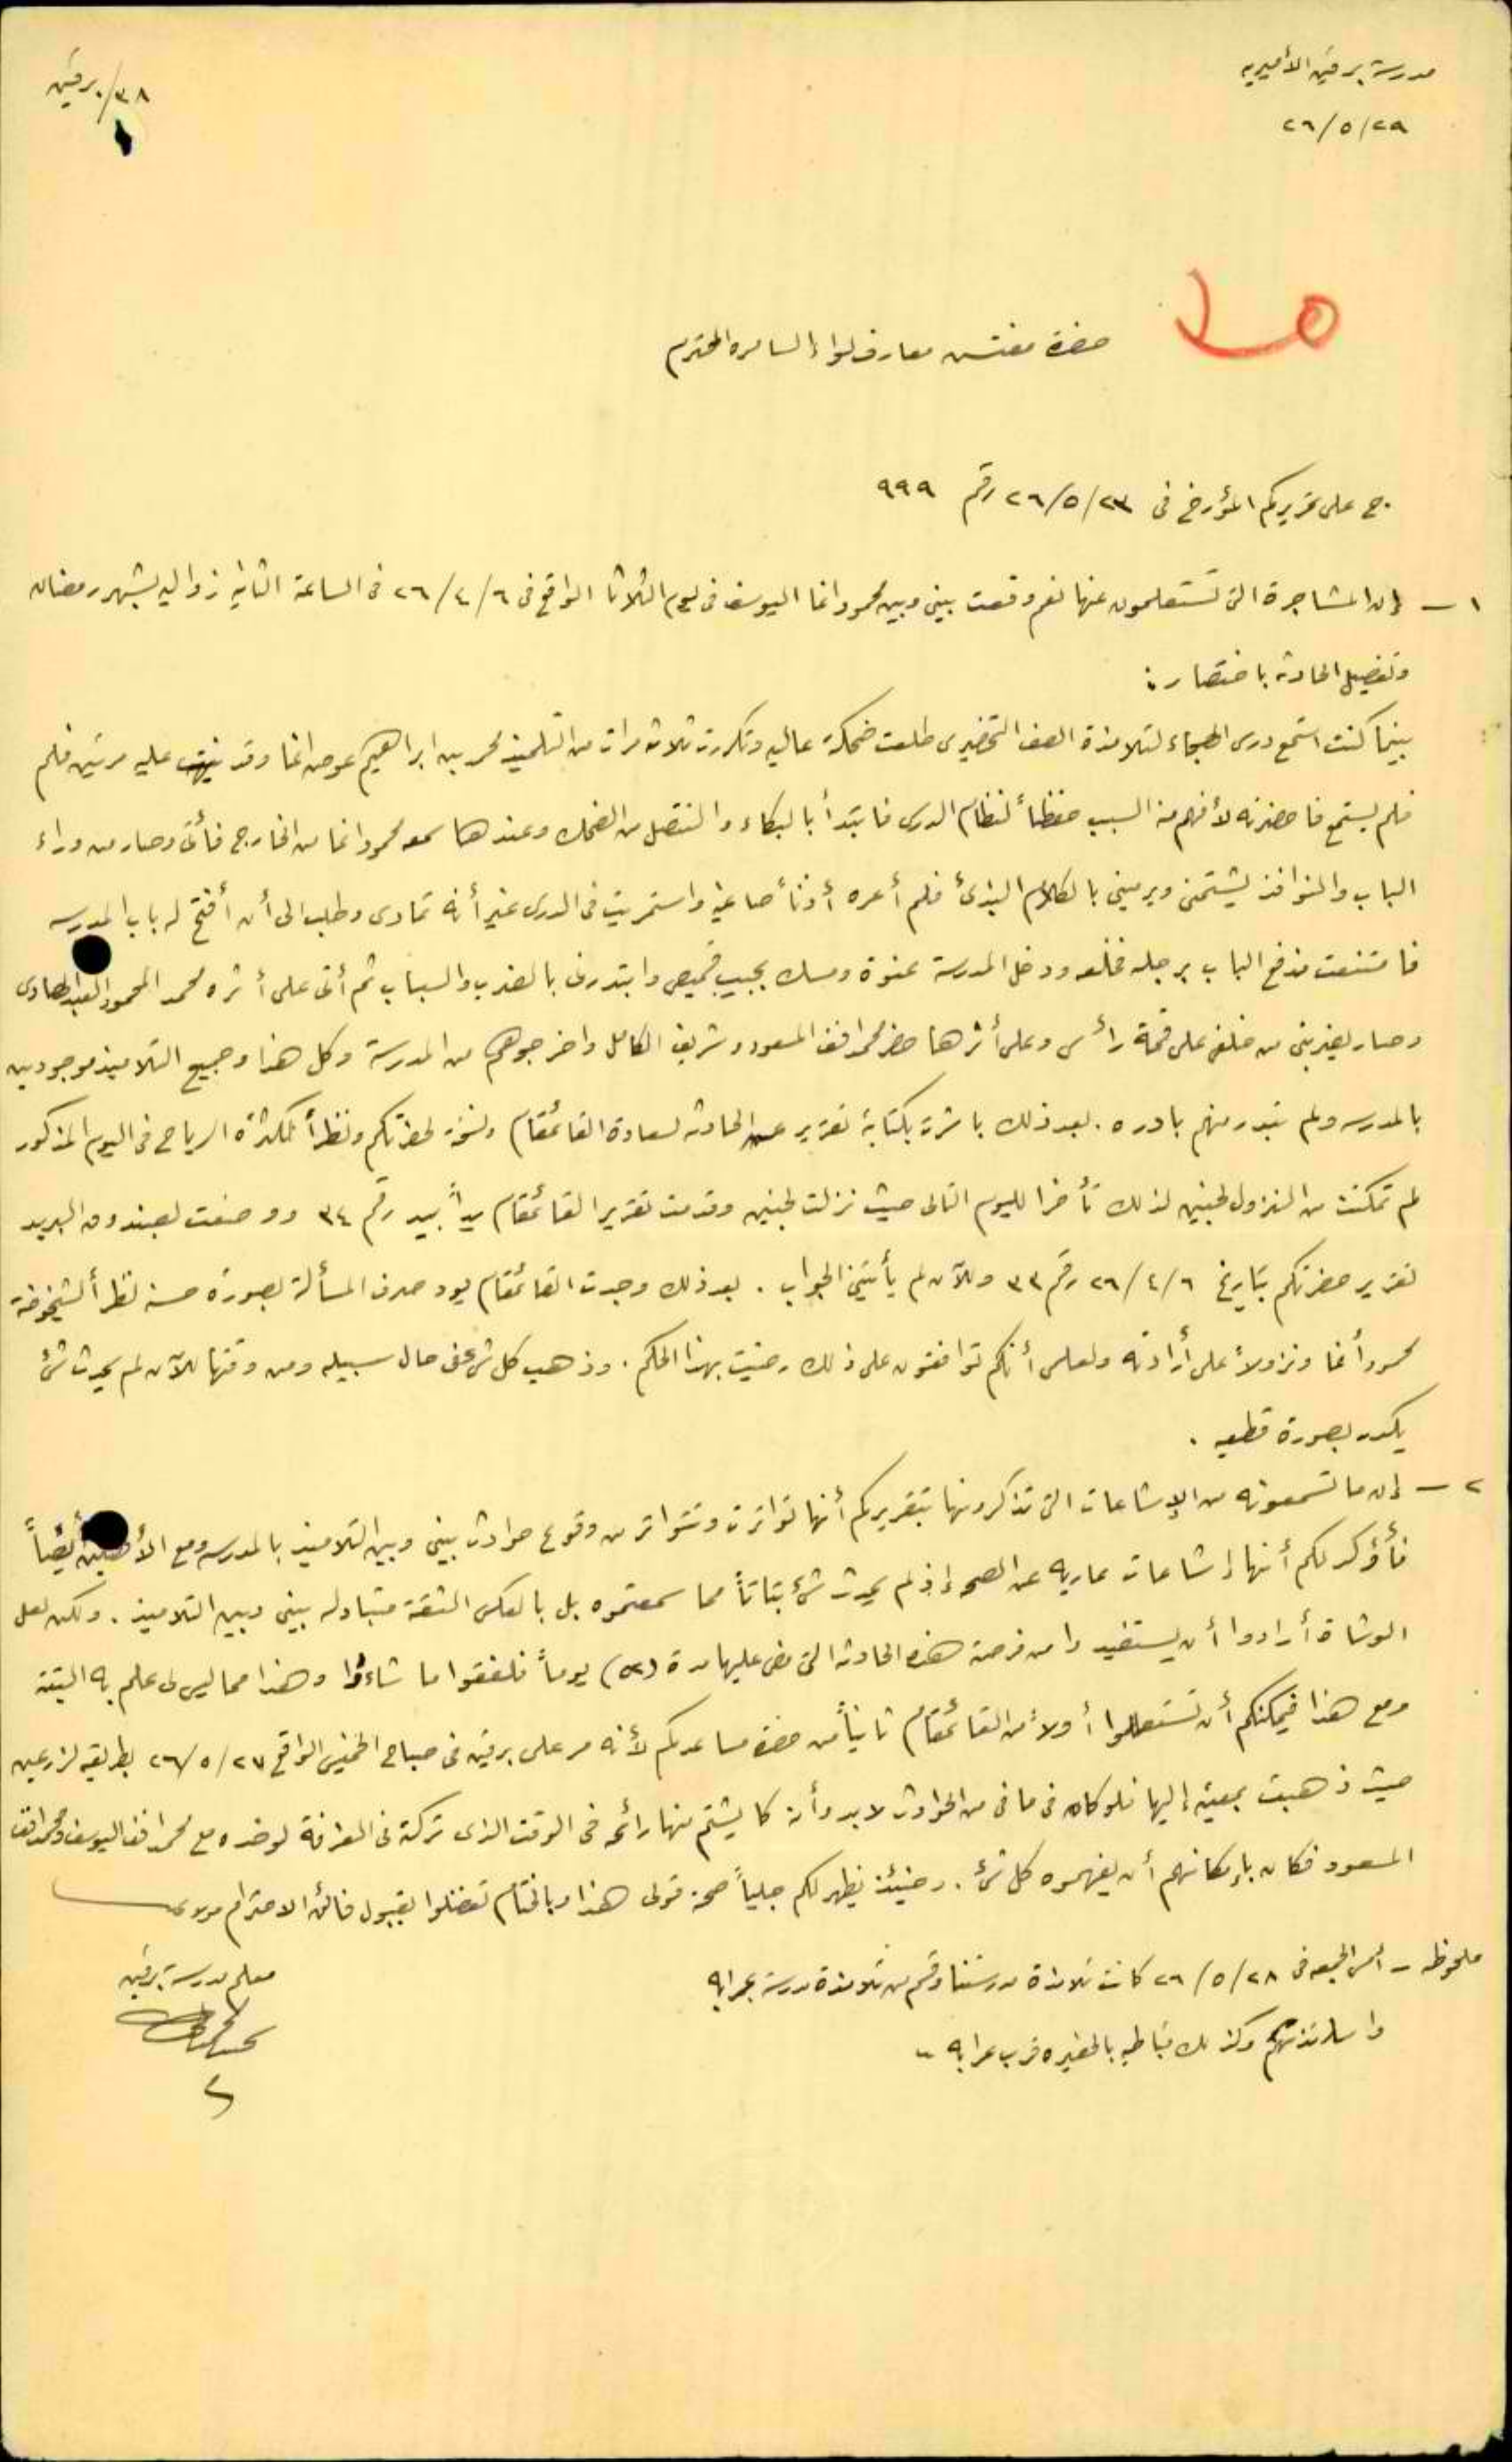 مدرسة برقين الأميرية
٢٩/٥/٢٦
٣٨/برقين
حضرة مفتش معارف لواء السامره المحترم
ج على تحريركم المؤرخ فى ٢٣/٥/٢٦ رقم ٩٩٩
١ – إن المشاجرة التى تستعلمون عنها نعم وقعت بينى وبين محمود اغا اليوسف فى يوم الثلاثا الواقع فى ٦/٤/٢٦ فى الساعة الثانية زواليه بشهر رمضان
وتفصيل الحادثه باختصار :
بينما كنت استمع درس الهجاء لتلامذة الصف التحضيرى طلعت ضحكة عاليه وتكررت ثلاث مرات من التلميذ محمد بن ابراهيم عوض اغا وقد نبهت عليه مرتين فلم
فلم يستمع فاحضرته لأفهم منه السبب حفظاً لنظام الدرس فابتدأ بالبكاء والتنصل من الضحك وعندها سمعه محمود اغا من الخارج فأتى وصار من وراء
الباب والنوافذ يشتمنى ويرمينى بالكلام البذئ فلم أعره أذناً صاغية واستمريت فى الدرس غير أنه تمادى وطلب الى أن أفتح له باب المدرسه
فامتنعت فدفع الباب برجله فخلعه ودخل المدرسة عنوة ومسك بجيب قميصى وابتدرنى بالضرب والسباب ثم أتى على أثره محمد المحمود العبد الهادى
وصار يضربنى من خلفى على قمة رأسى وعلى أثرها حضر محمد افندى المسعود وشريف الكامل واخرجوهم من المدرسة وكل هذا وجميع التلاميذ موجودين
بالمدرسه ولم تبدر منهم بادره . بعد ذلك باشرت بكتابة تقرير عن الحادثه لسعادة القائمقام ونسخة لحضرتكم ونظراً لكثرة الرياح فى اليوم المذكور
لم تمكنت من النزول لجنين لذلك تأخرا لليوم التالى حيث نزلت لجنين وقدمت تقرير القائمقام يداً بيد رقم ٣٤ ووضعت بصندوق البريد
تقرير حضرتكم بتاريخ ٦/٤/٢٦ رقم ٣٣ وللآن لم يأتينى الجواب . بعد ذلك وجدت القائمقام يود صرف المسألة بصورة حسنة نظراً لشيخوخة
محمود أغا ونزولاً على أرادته ولعلمى أنكم توافقون على ذلك رضيت بهذا الحكم . وذهب كل شئ فى حال سبيله ومن وقتها للآن لم يحدث شئ
يكدر بصورة قطعيه .
٢ – إن ما تسمعونه من الإشاعات التى تذكرونها بتقريركم أنها تواترت وتتواتر من وقوع حوادث بينى وبين التلاميذ بالمدرسه ومع أيضاً
فأؤكد لكم أنها إشاعات عاريه عن الصحه إذ لم يحدث شئ بتاتاً مما سمعتموه بل بالعكس الثقة متبادله بينى وبين التلاميذ . ولكن لعل
الوشاة أرادوا أن يستفيدوا من فرصة هذه الحادثه التى مضى عليها مدة (٥٢) يوماً فلفقوا ما شاءوا وهذا مما ليس لى علم به البتة
ومع هذا فيمكنكم أن تستعلموا أولاً من القائمقام ثانياً من حضرة مساعدكم لأنه مر على برقين فى صباح الخميس الواقع ٢٧/٥/٢٦ بطريقه لزرعين
حيث ذهبت بمعيته إليها فلو كان فى ما فى من الحوادث لا بد وأن كا يشتم منها رائحه فى الوقت الذى تركته فى الغرفة لوحده مع محمد افندى اليوسف ومحمد افندى
المسعود فكان بإمكانهم أن يفهموه كل شئ . وحينئذ يظهر لكم جلياً صحة قولى هذا وبالختام تفضلوا بقبول فائق الاحترام
ملحوظه – أمس الجمعه فى ٢٨/٥/٢٦ كانت تلامذة مدرستنا وقسم من تلامذة مدرسة عرابه
واساتذتهم وكذلك قباطيه بالحفيره قرب عرابه –
معلم مدرسة برقين